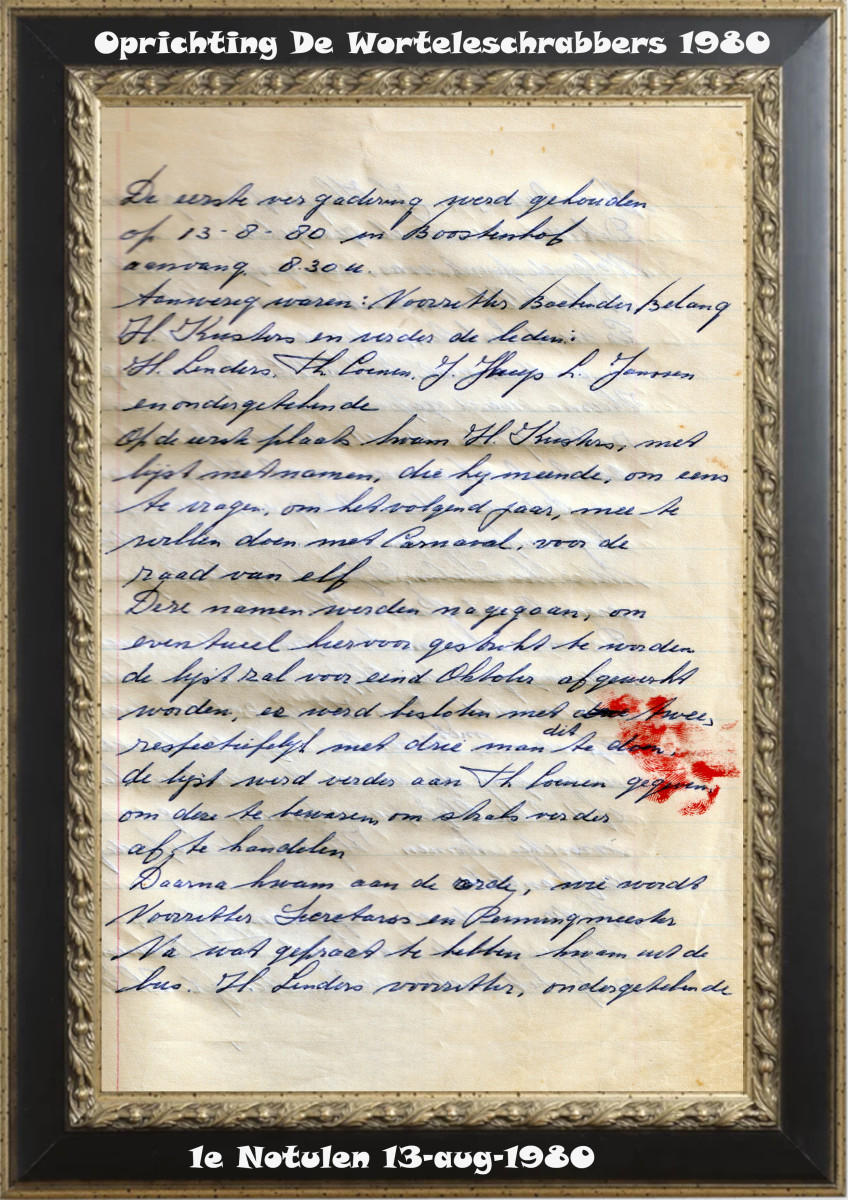 Oprichting De Worteleschrabbers 1980
De eerste vergadering werd gehouden
op 13-8-80 in Boostenhof
aanvang 8.30 u.
Aanwezig waren: Voorzitter Boekender Belang
H. Kusters en verder de leden:
H. Lenders. Th Coenen. J. L. Janssen
en ondergetekende
Op de eerste plaats kwam H. Kusters, met
lijst met namen, die hij meende, om eens
te vragen, om het volgend jaar, mee te
willen doen met Carnaval, voor de
raad van elf
Deze namen werden nagegaan, om
eventueel hiervoor gestrikt te worden
de lijst zal voor eind Oktober afgewerkt
worden, er werd besloten met twee,
respectiefelijk met drie man dit te doen.
de lijst werd verder aan Th Coenen gegeven,
om deze te bewaren, om straks verder
af te handelen
Daarna kwam aan de orde, wie wordt
Voorzitter Secretaris en Penningmeester
Na wat gepraat te hebben kwam uit de
bus. H. Lenders voorzitter, ondergetekende
1e Notulen 13-aug-1980